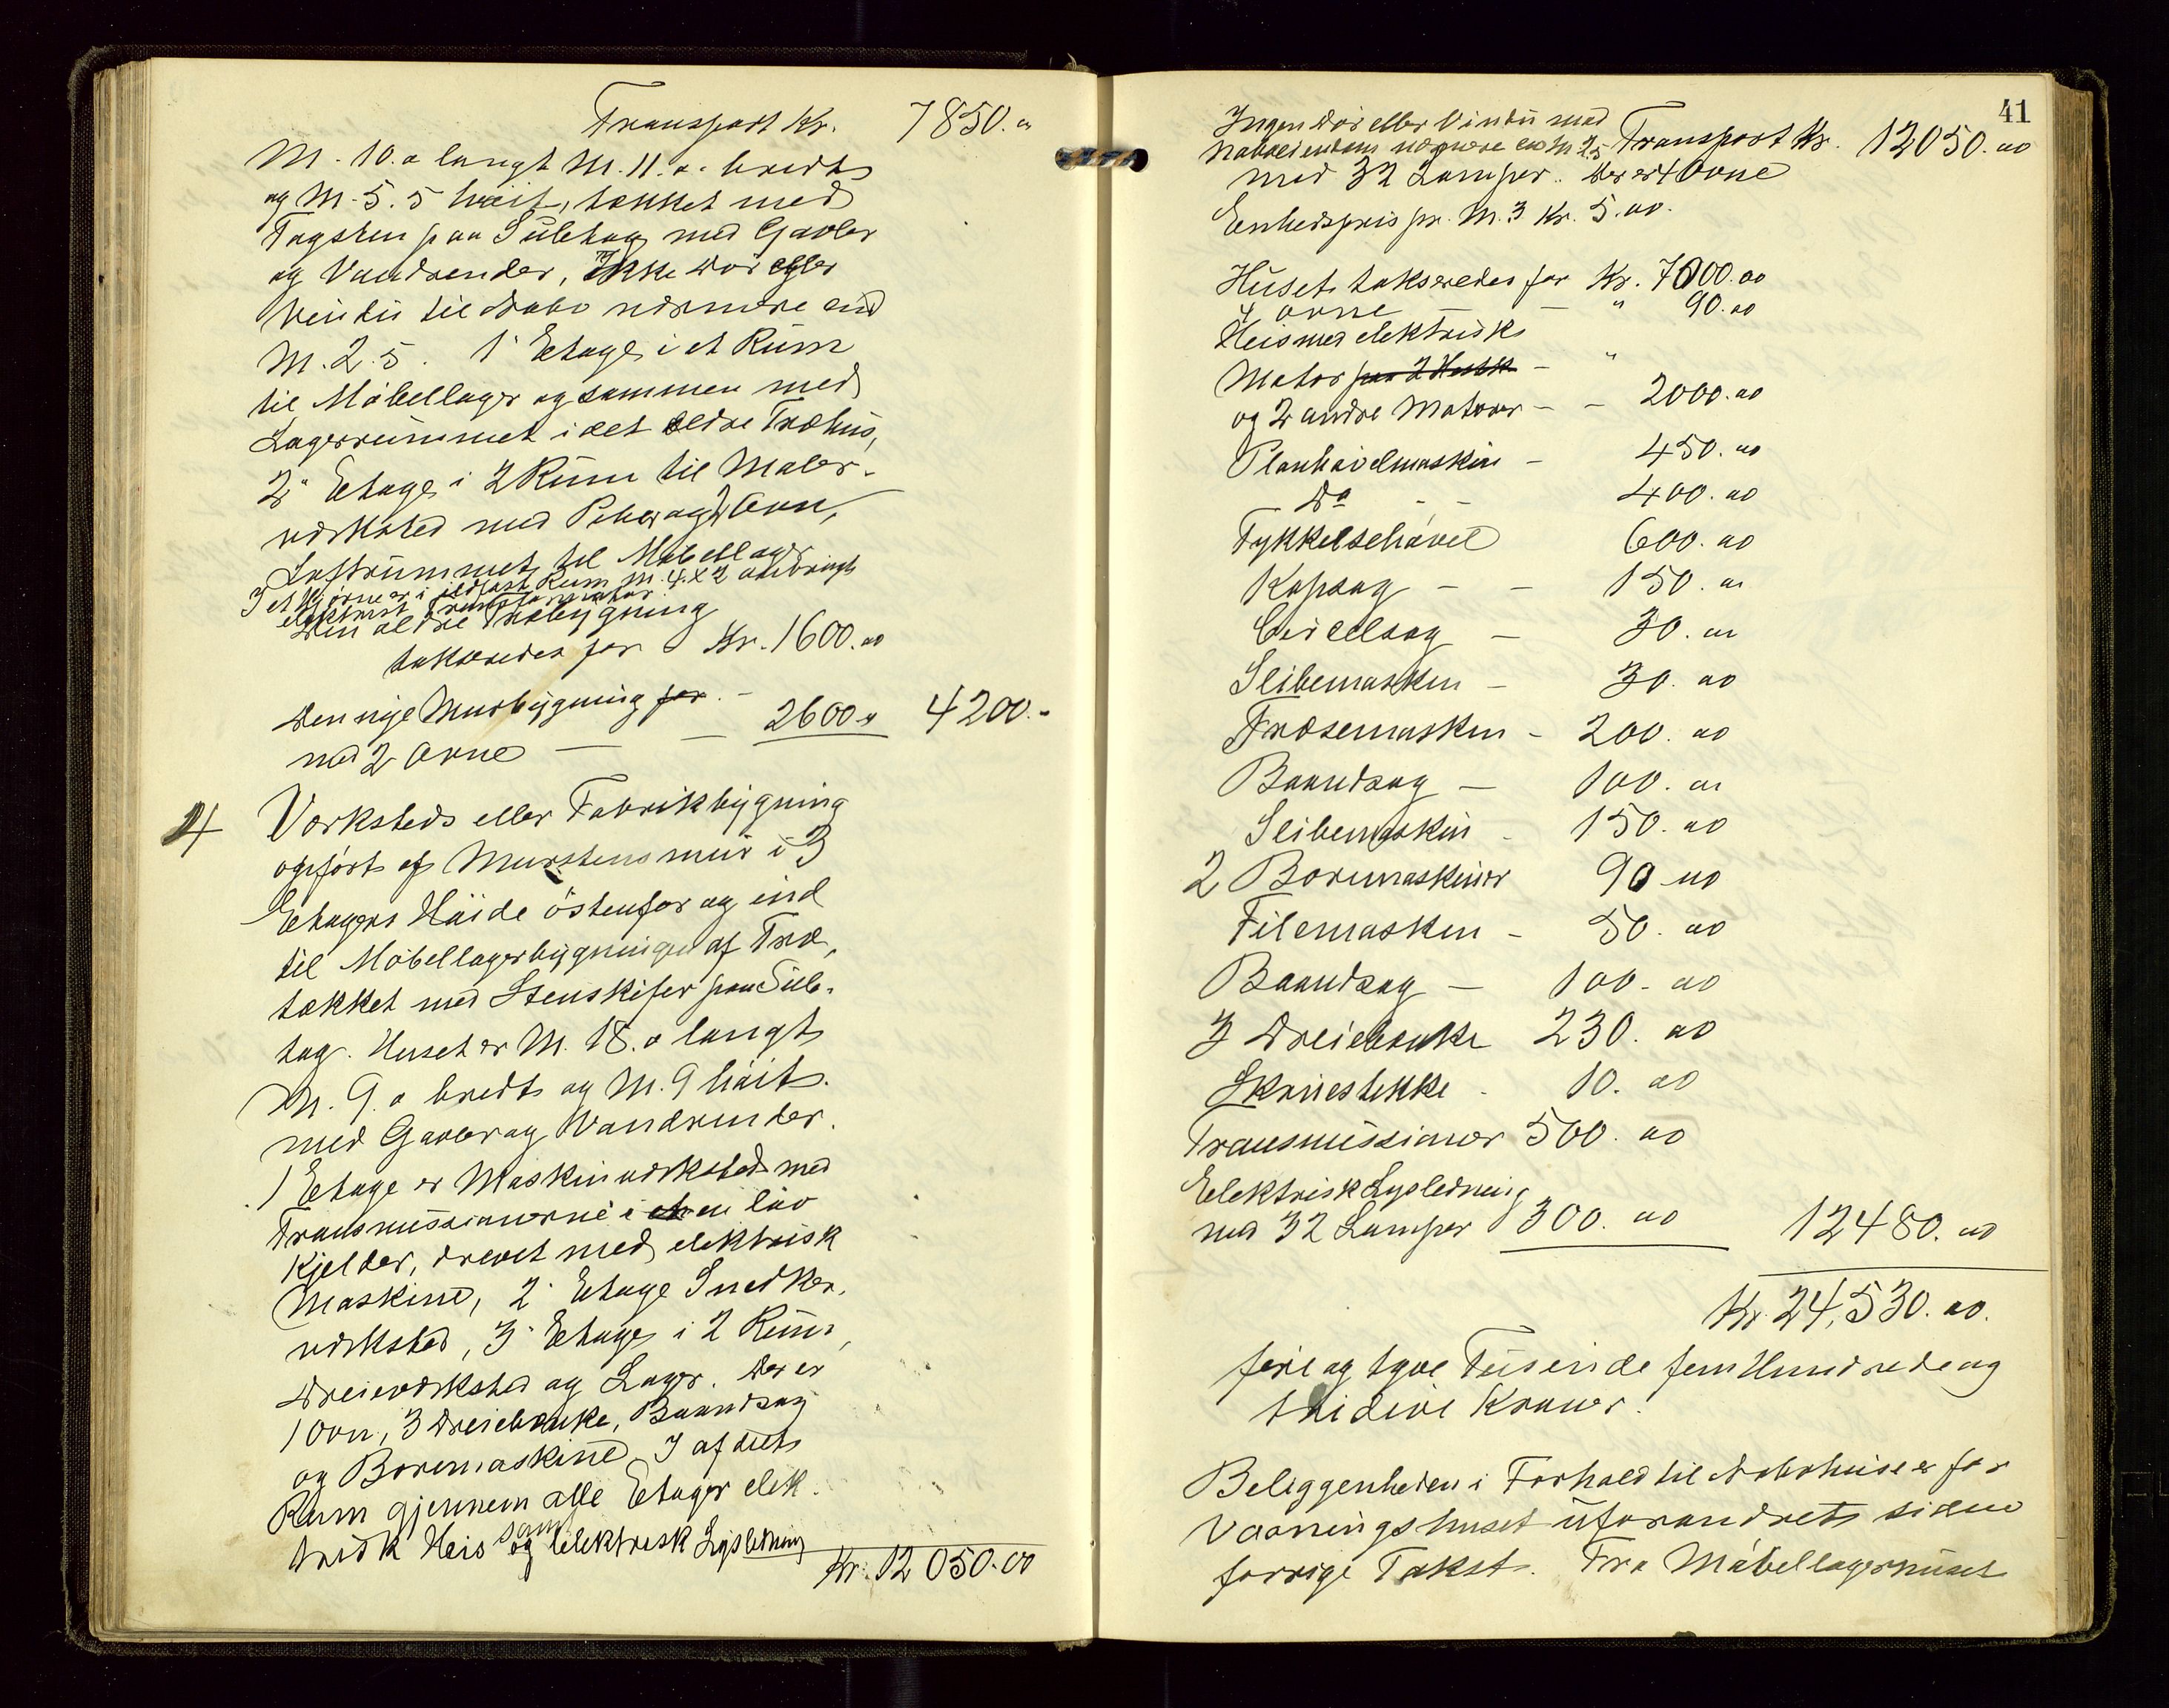 Transport Kr. 7850.00
M. 10.0 langt M. 11.0 bredt
og M. 5.5 höit, tækket med
Tagsten paa Suletag med Gavler
og Vandrender, Ikke Dör eller
Vindu til Nabo nærmere end
M. 2.5. 1' Etage i et Rum
til Möbellager og sammen med
Lagerrummet i det ældre Træhus,
2" Etage i 2 Rum til Maler-
værksted med Pibe og 2 Ovn,
Loftrummet til Möbellager
I et Hjörne er i ildfast Rum M. 4 x 2 anbragt
elektrisk Transformator
Den ældre Træbygning
takseredes for Kr. 1600.00
Den nye Murbygning for. -
med 2 Ovne — — 2600.00 4200.-
4 Værksteds eller Fabrikbygning
opfört af Murstensmur i 3
Etagers Höide östenfor og ind
til Möbellagerbygningen af Træ,
tækket med Stenskifer paa Sule-
tag. Huset er M. 18.0 langt
M. 9.0 bredt og M. 9 höit.
med Gavler og Vandrender.
1 Etage er Maskinværksted med
Transmissionerne i en lav
Kjelder, drevet med elektrisk
Maskine, 2' Etage Snedker-
værksted, 3' Etage i 2 Rum,
Dreieværksted og Lager. Der er
1 Ovn, 3 Dreiebænke, Baandsag
og Boremaskine I af dets
Rum gjennem alle Etager elek-
trisk Heis samt og elektrisk Lysledning
Kr. 12 050.00
41
Ingen Dör eller Vindu mod
Naboeiendom nærmere end M 2.5 Transport Kr. 12050.00
med 32 Lamper. Der er 4 Ovne
Enhedspris pr. M.3 Kr. 5.00.
Huset takseredes for Kr. 7000.00
4 Ovne — — " 90.00
Heis med elektrisk
Motor paa 2 Hestk - "
og 2 andre Motorer - - 2000.00
Planhövelmaskin - 450.00
Do - - 400.00
Tykkelsehövel 600.00
Kapsag - - 150.00
Circelsag - 30.00
Slibemaskin - 30.00
Fræsemaskin - 200.00
Baandsag - 100.00
Slibemaskin - 150.00
2 Boremaskiner 90.00
Filemaskin - 50.00
Baandsag - 100.00
3 Dreiebænke 230.00
Skruestikke - 10.00
Transmissioner 500.00
Elektrisk Lysledning
med 32 Lamper 300.00 12480.00
Kr. 24,530.00.
fire og tyve Tusinde fem Hundrede og
tridive Kroner.
Beliggenheden i Forhold til Nabohuse er for
Vaaningshuset uforandret siden
forrige Takst. Fra Möbellagerhuset